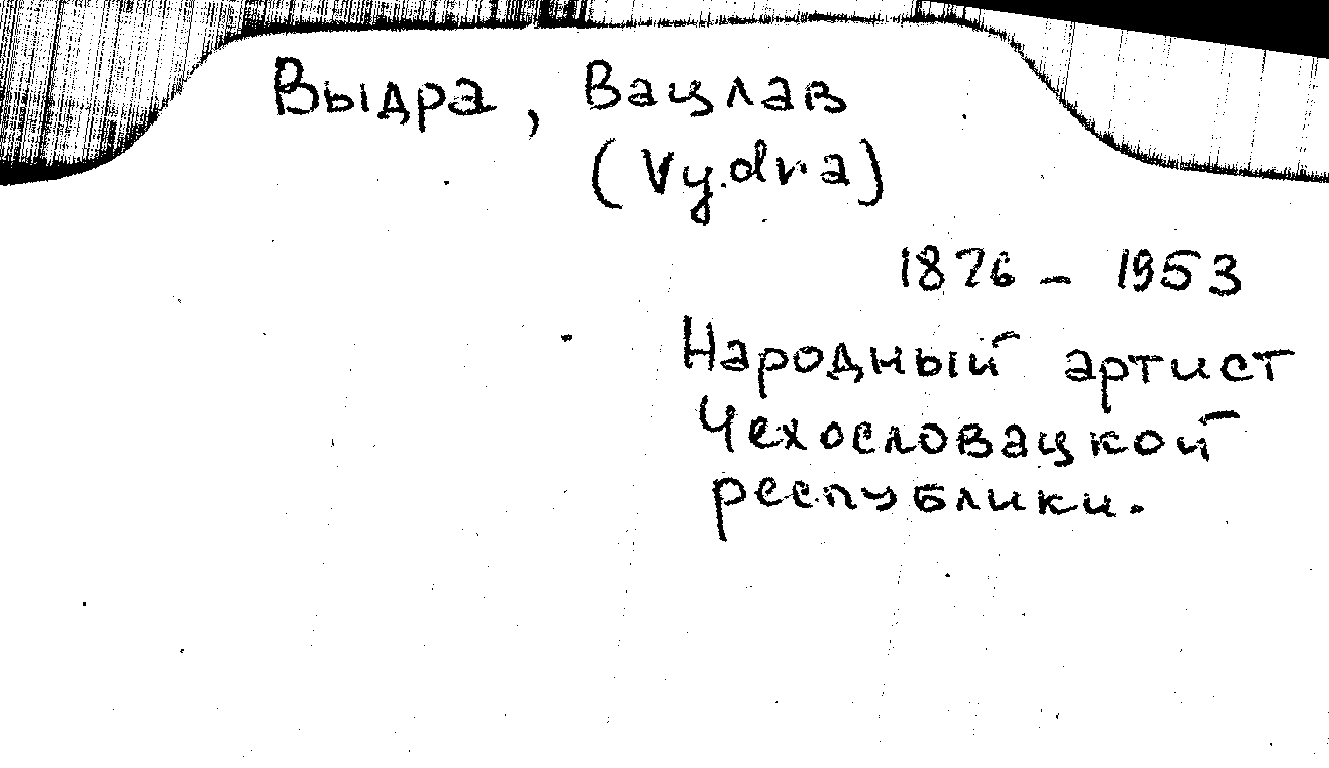 Выдра, Вацлав
(Vydra)
1876 - 1953
Народный артист
Чехословацкой
республики.